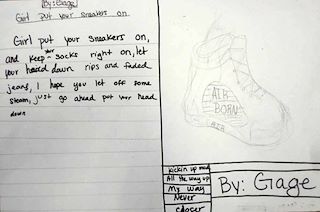 By: Gage
Girl put your sneakers on
Girl put your sneakers on,
and keep your socks right on, let
your haird down rips and faded
jeans, I hope you let off some
steam, just go ahead put your head
down
AIR
BORN
AIR
kickin up mud
All the way up
My way
Never
closer
By: Gage